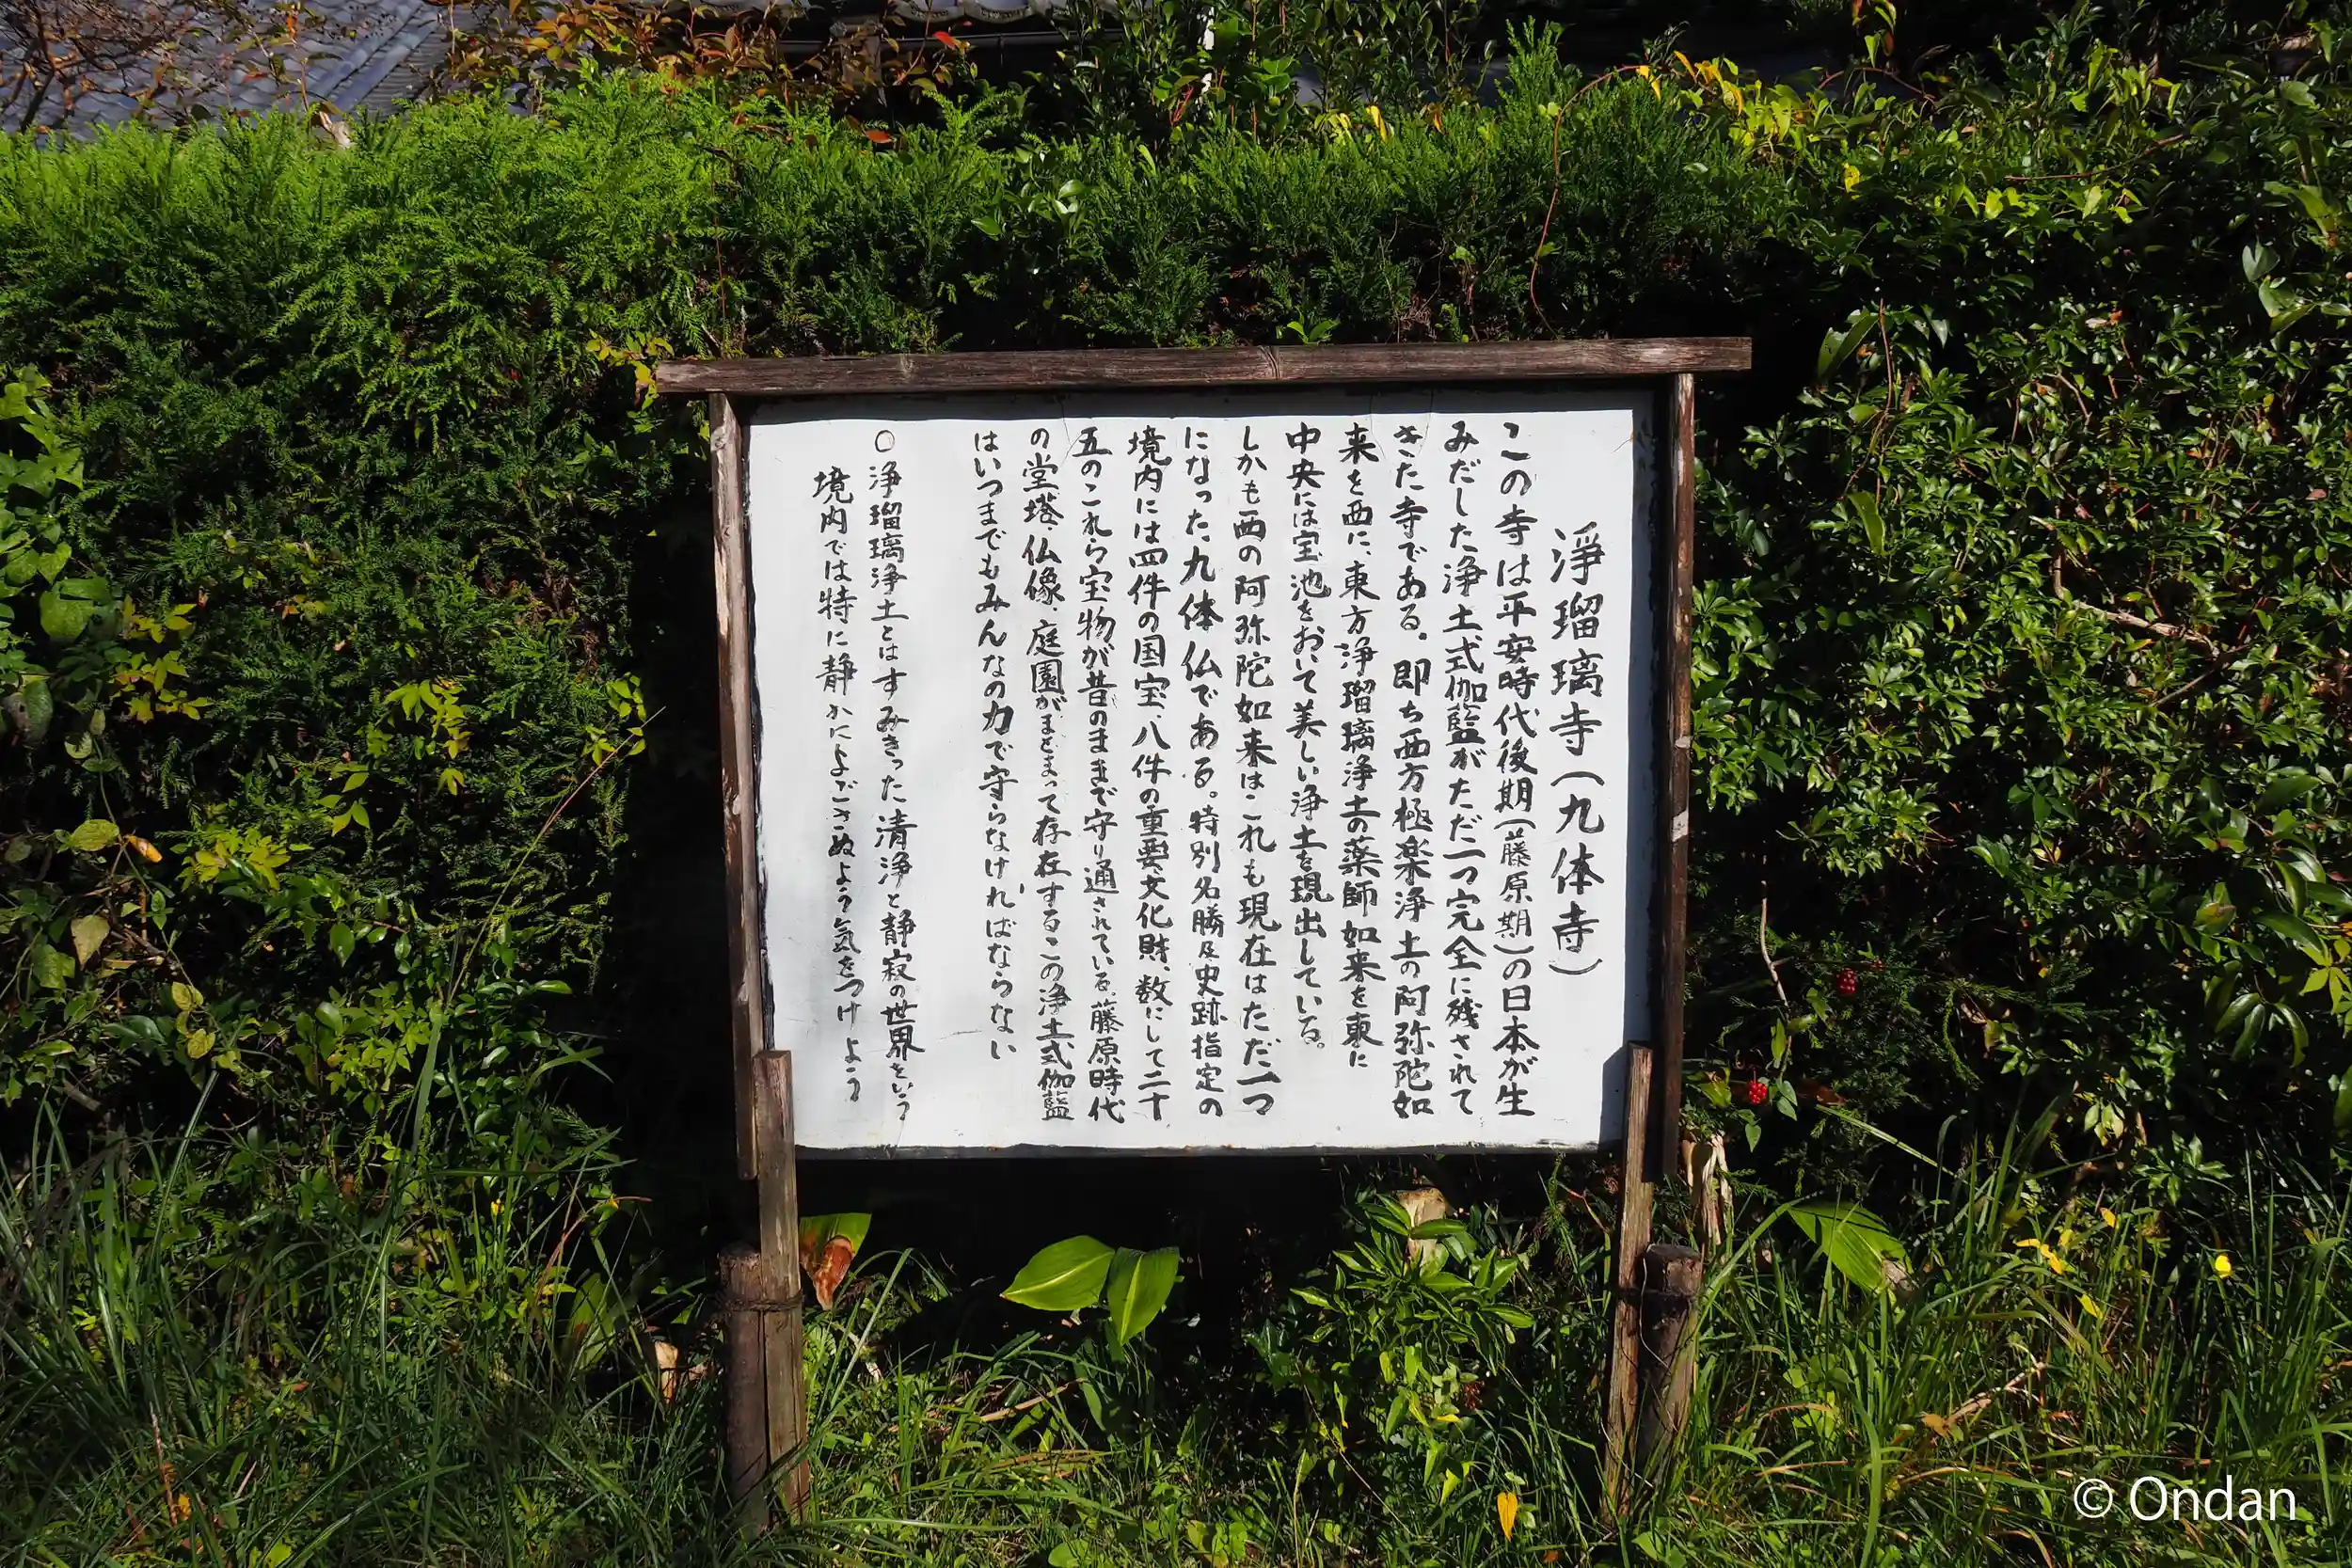 浄瑠璃寺(九体寺)
この寺は平安時代後期(藤原期)の日本が生
みだした浄土式伽藍がただ一つ完全に残されて
きた寺である。即ち西方極楽浄土の阿弥陀如
来を西に、東方浄瑠璃浄土の薬師如来を東に
中央には宝池をおいて美しい浄土を現出している。
しかも西の阿弥陀如来はこれも現在はただ一つ
になった九体仏である。特別名勝及史跡指定の
境内には四件の国宝、八件の重要文化財、数にして二十
五のこれら宝物が昔のままで守り通されている。藤原時代
の堂塔、仏像、庭園がまとまって存在するこの浄土式伽藍
はいつまでもみんなの力で守らなければならない
○浄瑠璃浄土とはすみきった清浄と静寂の世界をいう
境内では特に静かによごさぬよう気をつけよう
© Ondan